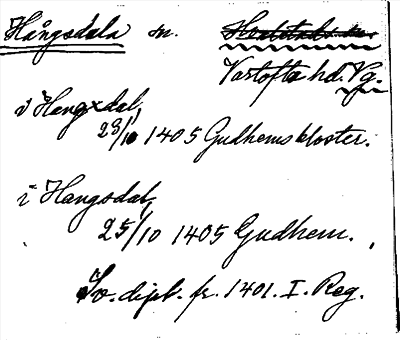 Hångsdala sn.
Vartofta hd. Vg.
i Hangxdal,
23/10 1405 Gudhems kloster.
i Hangsdal,
25/10 1405 Gudhem.
Sv. dipl. fr. 1401. I. Reg.